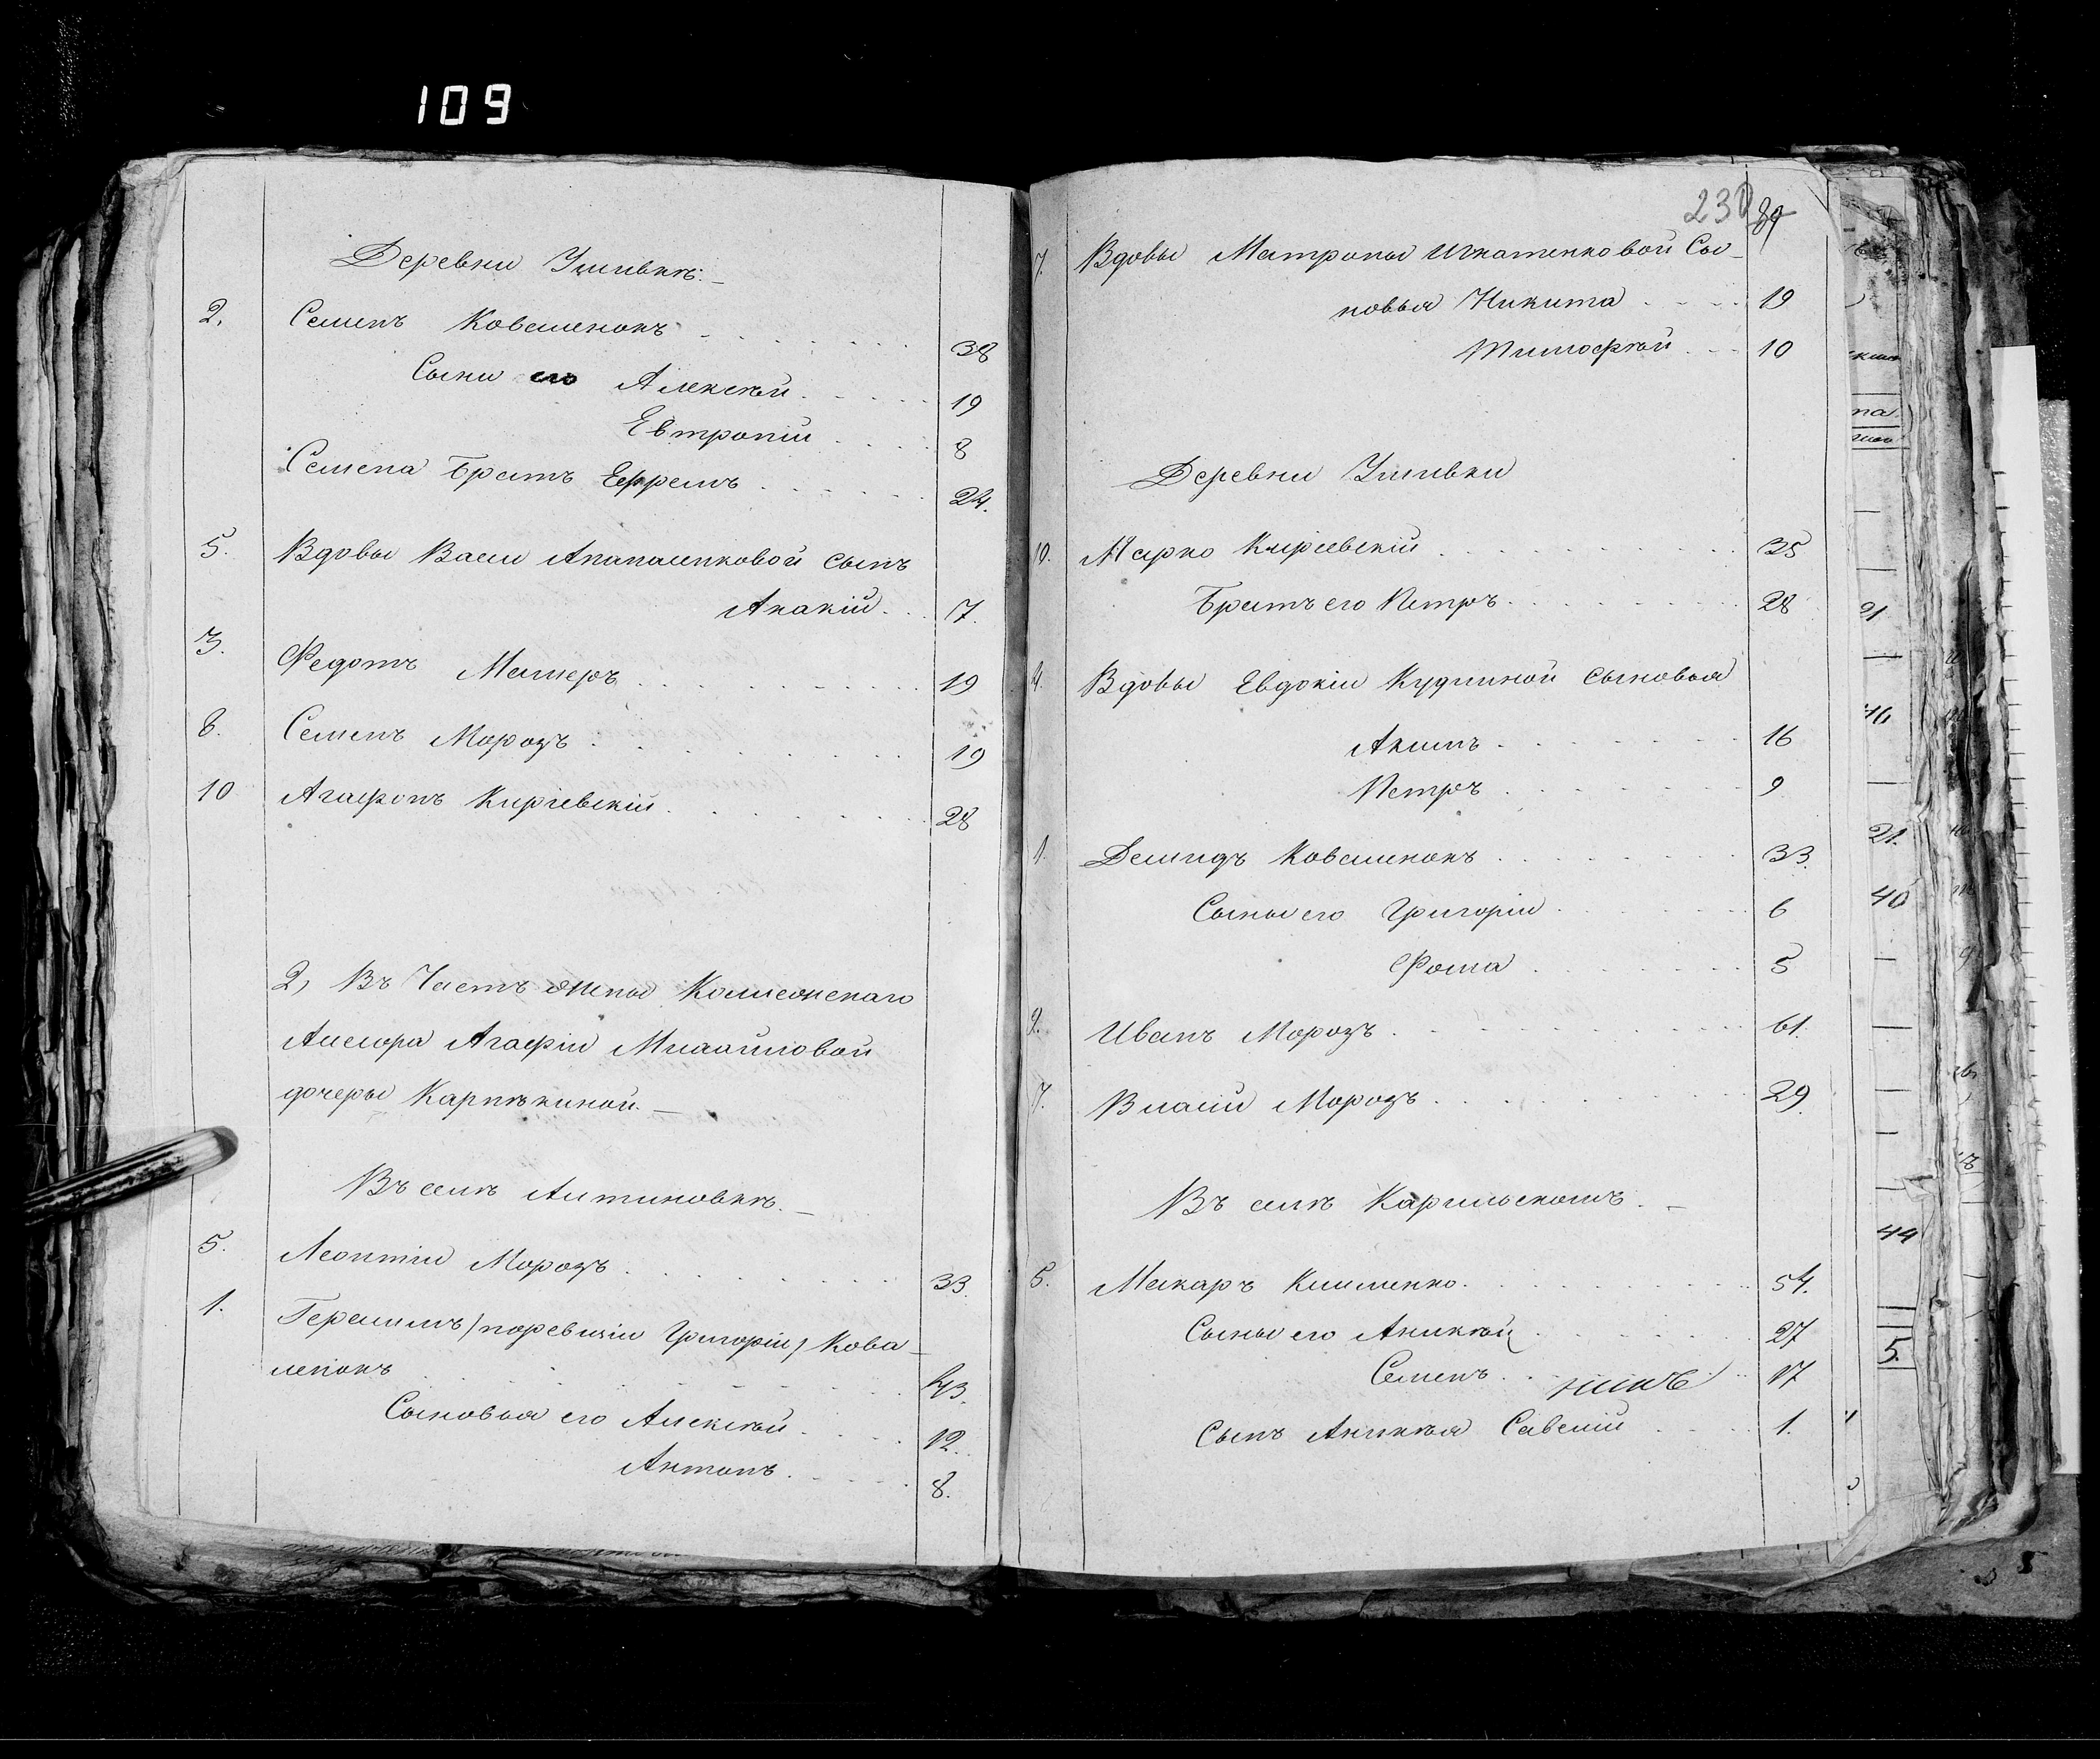 109
Деревни Ушивкѣ.
2. Семенъ Коваленокъ 38
Сыни его Алексѣй 19
Евтропій 8
Семена Братъ Ефремъ 24.
5. Вдовы Васи Апанасенковой сынъ
Акакій 7.
3. Федотъ 19
8. Семенъ Морозъ 19
10 Агафонъ Киріевскій 28
2, Въ Часть жены Коллежскаго
Ассесора Агафіи Михайловой
дочеры Карпѣкиной.
Въ селѣ Литиновкѣ.
5. Леонтій Морозъ 33.
1. Герасимъ /поревизіи Григорій/ Кова-
ленокъ 43.
Сыновья его Алексѣй 12.
Антонъ 8.
230
7. Вдовы Матроны Игнатенковой Сы-
новья Никита 19
Тимофѣй 10
Деревни Ушивки
10. Марко Киріевскій 35
Братъ его Петръ 28
4. Вдовы Евдокіи Кудиной сыновья
Акимъ 16
Петръ 9
1. Демидъ Коваленокъ 33.
Сыны его Григорій 6
Фома 5
9. Иванъ Морозъ 61.
7. Власій Морозъ 29.
Въ селѣ Карильскомъ.
5. Макаръ Клименко 54.
Сыны его Аникѣй 27
Семенъ 17
Сынъ Аникѣя Савелій 1.